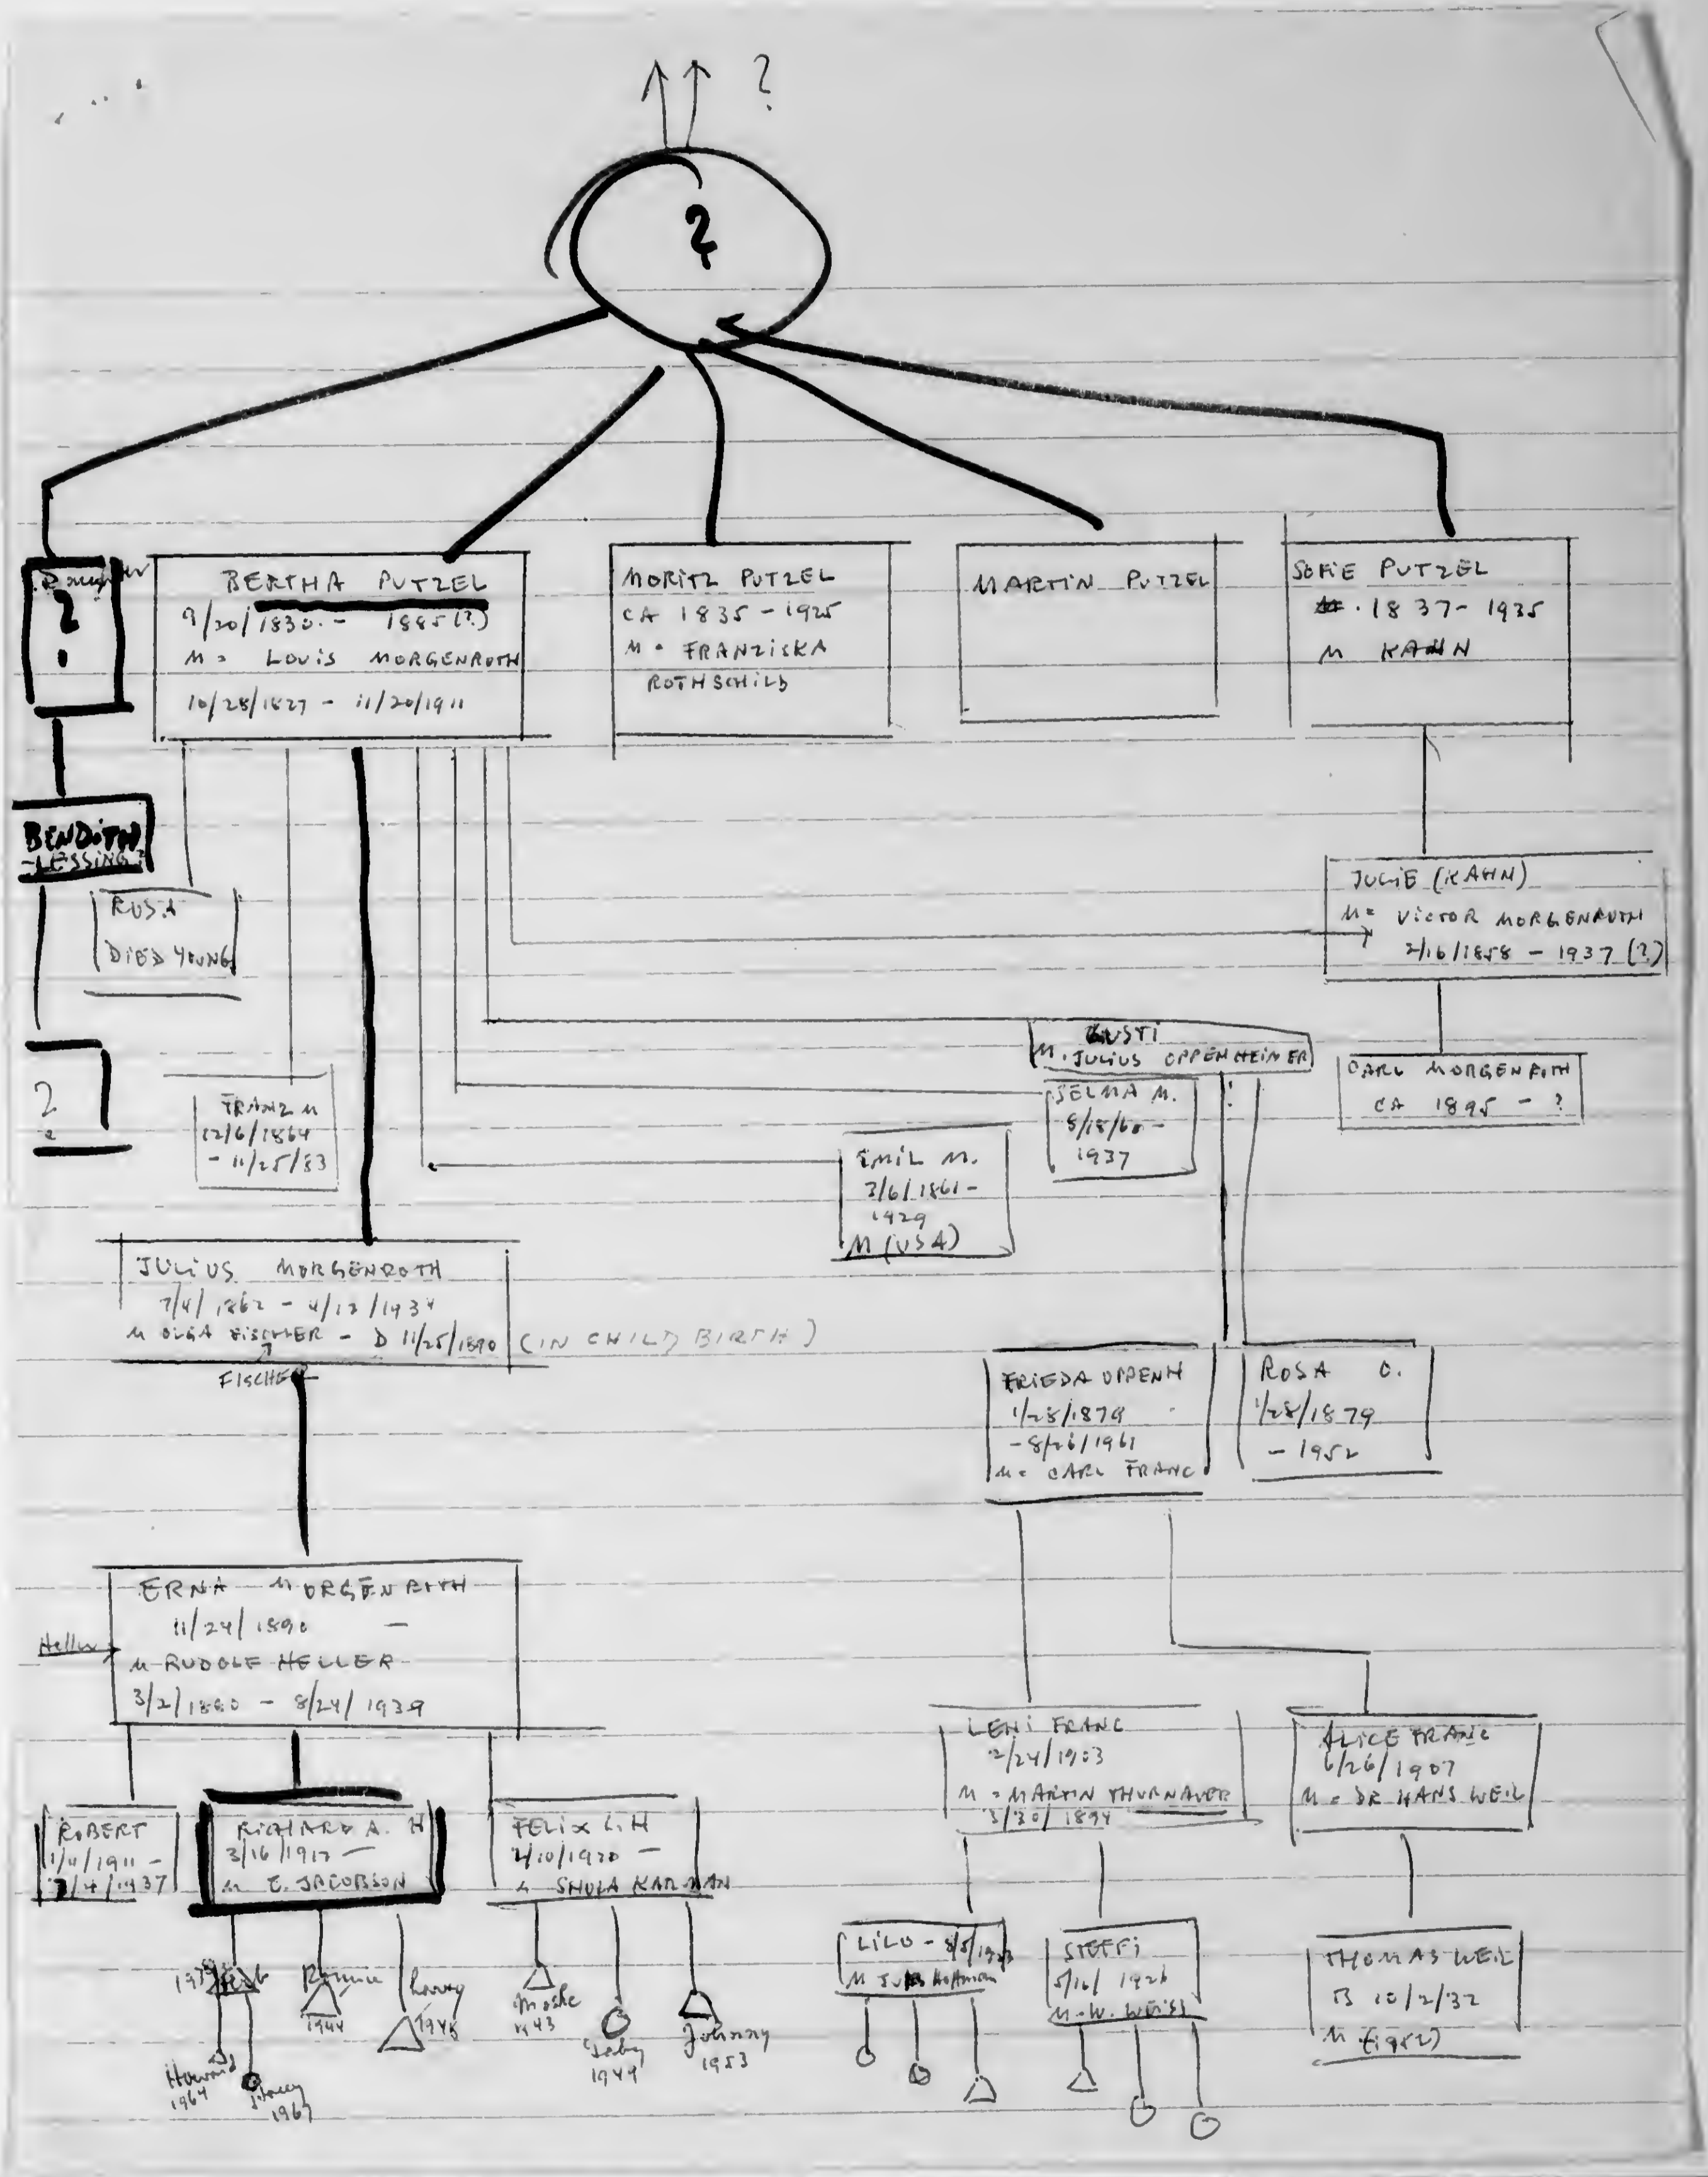 ?
?
Daughter
?
BERTHA PUTZEL
9/20/1830 - 1885(?)
M = LOUIS MORGENROTH
10/28/1827 - 11/20/1911
MORITZ PUTZEL
CA 1835 - 1925
M = FRANZISKA
ROTHSCHILD
MARTIN PUTZEL
SOFIE PUTZEL
1837 - 1935
M KAHN
BENDITH
-LESSING?
ROSA
DIED YOUNG
JULIE (KAHN)
M = VICTOR MORGENROTH
2/16/1858 - 1937 (?)
?
GUSTI
M. JULIUS OPPENHEIMER
CARL MORGENROTH
CA 1895 - ?
FRANZ M
12/6/1864
- 11/25/83
SELMA M.
8/18/60 -
1937
EMIL M.
3/6/1861 -
1929
M (USA)
JULIUS MORGENROTH
7/4/1862 - 4/12/1934
M OLGA FISCHER - D 11/25/1890 (IN CHILD BIRTH)
FISCHER
FRIEDA OPPENH
1/28/1879
- 8/26/1961
M = CARL FRANC
ROSA O.
1/28/1879
- 1952
ERNA MORGENROTH
11/24/1890 -
Heller
M RUDOLF HELLER
3/2/1880 - 8/24/1939
LENI FRANC
2/24/1903
M = MARTIN THURNAUER
3/30/1894
ALICE FRANC
6/26/1907
M = DR HANS WEIL
ROBERT
1/11/1911 -
7/4/1937
RICHARD A. H
3/16/1917 -
M E. JACOBSON
FELIX L. H
2/10/1920 -
M SHULA KARMAN
LILO - 8/5/1923
M Hoffman
STEFFI
5/16/1926
M - W. WEISL
THOMAS WEIL
B 10/2/32
M (1952)
Ronnie
1944
Larry
1948
Moshe
1943
1949
Johnny
1953
Howard
1964
Stacey
1967